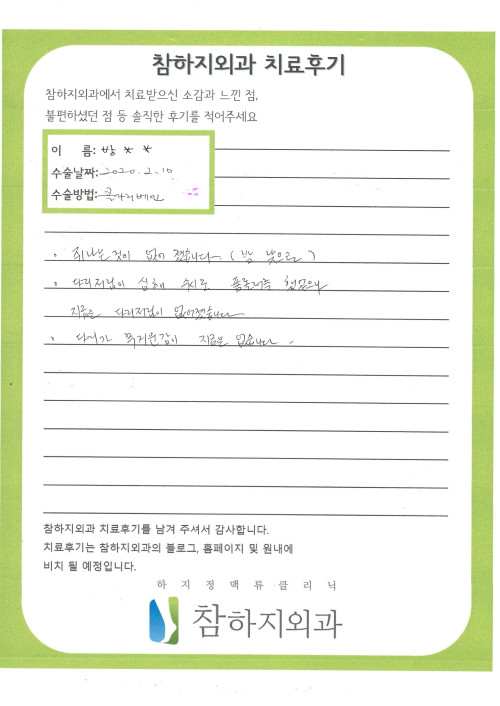 참하지외과 치료후기
참하지외과에서 치료받으신 소감과 느낀 점,
불편하셨던 점 등 솔직한 후기를 적어주세요
이 름: 방 * *
수술날짜: 2020. 2. 10
수술방법: 클라리베인
· 쥐나는 것이 없어 졌습니다 (밤 낮으로)
· 다리저림이 심해 수시로
지금은 다리저림이 없어졌습니다
· 다리가 무거운감이 지금은 없습니다.
참하지외과 치료후기를 남겨 주셔서 감사합니다.
치료후기는 참하지외과의 블로그, 홈페이지 및 원내에
비치 될 예정입니다.
하지정맥류클리닉
참하지외과